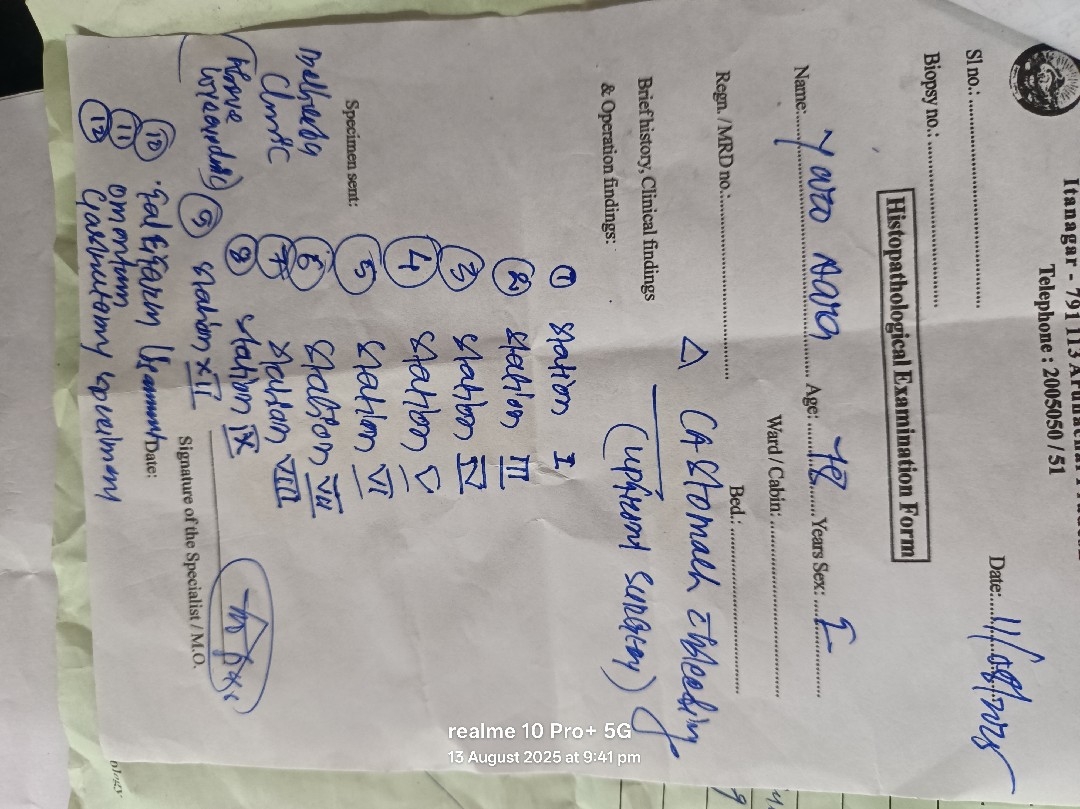 Itanagar - 791 113 Arunachal Prades
Telephone : 2005050 / 51
Sl no.:
Date: 11/08/2025
Biopsy no.:
Histopathological Examination Form
Name: Yaro Aara Age: 78 Years Sex: F
Ward / Cabin:
Regn. / MRD no.: Bed.:
Brief history, Clinical findings
& Operation findings:
Δ CA Stomach c bleeding
(upfront surgery)
① station I
② station III
③ station IV
④ station V
⑤ station VI
⑥ station VII
⑦ station VIII
⑧ station IX
⑨ station XII
Specimen sent:
Clinic
⑩ Falciform ligament
⑪ omentum
⑫ Gastrectomy specimen
Date:
Signature of the Specialist / M.O.
realme 10 Pro+ 5G
13 August 2025 at 9:41 pm